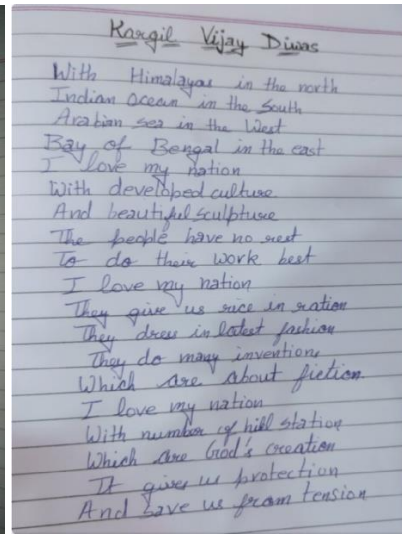 Kargil Vijay Diwas
With Himalayas in the north
Indian Ocean in the South
Arabian sea in the West
Bay of Bengal in the east
I love my nation
With developed culture
And beautiful sculpture
The people have no rest
To do their work best
I love my nation
They give us rice in ration
They dress in latest fashion
They do many inventions
Which are about fiction
I love my nation
With number of hill station
Which are God's creation
It gives us protection
And save us from tension